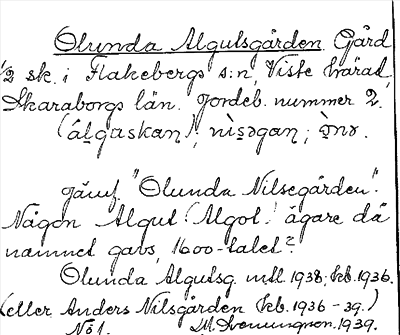 Olunda Algutsgården. Gård
1/2 sk. i Flakebergs s:n, Viste härad,
Skaraborgs län. Jordeb. nummer 2.
Jämf. "Olunda Nilsegården".
Någon Algut (Algot) ägare då
namnet gavs, 1600-talet?
Olunda Algutsg. mtl. 1938; feb. 1936.
(eller Anders Nilsgården feb. 1936-39.)
No 1. 1939.